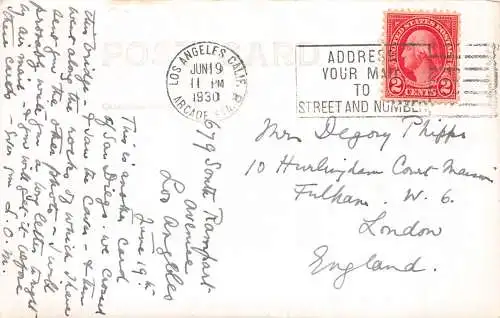 POST CARD
LOS ANGELES, CALIF.
JUN 19
11 PM
1930
ARCADE STA.
ADDRESS
YOUR MAIL
TO
STREET AND NUMBER
UNITED STATES POSTAGE
2 CENTS 2
Mrs Degory Phipps
10 Hurlingham Court Mansions
Fulham. W. 6.
London
England.
679 South Rampart
Avenue
Los Angeles
June 19th
This is another card
of San Diego. we crossed
this bridge - & saw the caves - & then
went along the rocks of which I have
sent you the other photo - I will
probably write you a long letter tonight
by air mail - & you will get it before
these cards - Give you